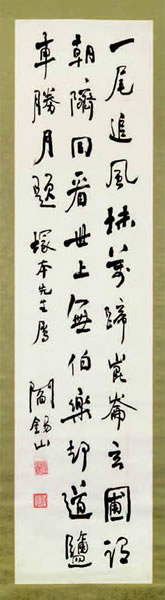 一尾追風抹萬蹄崑崙玄圃謂
朝隮回看世上無伯樂却道鹽
車勝月題 塚本先生屬 閻錫山